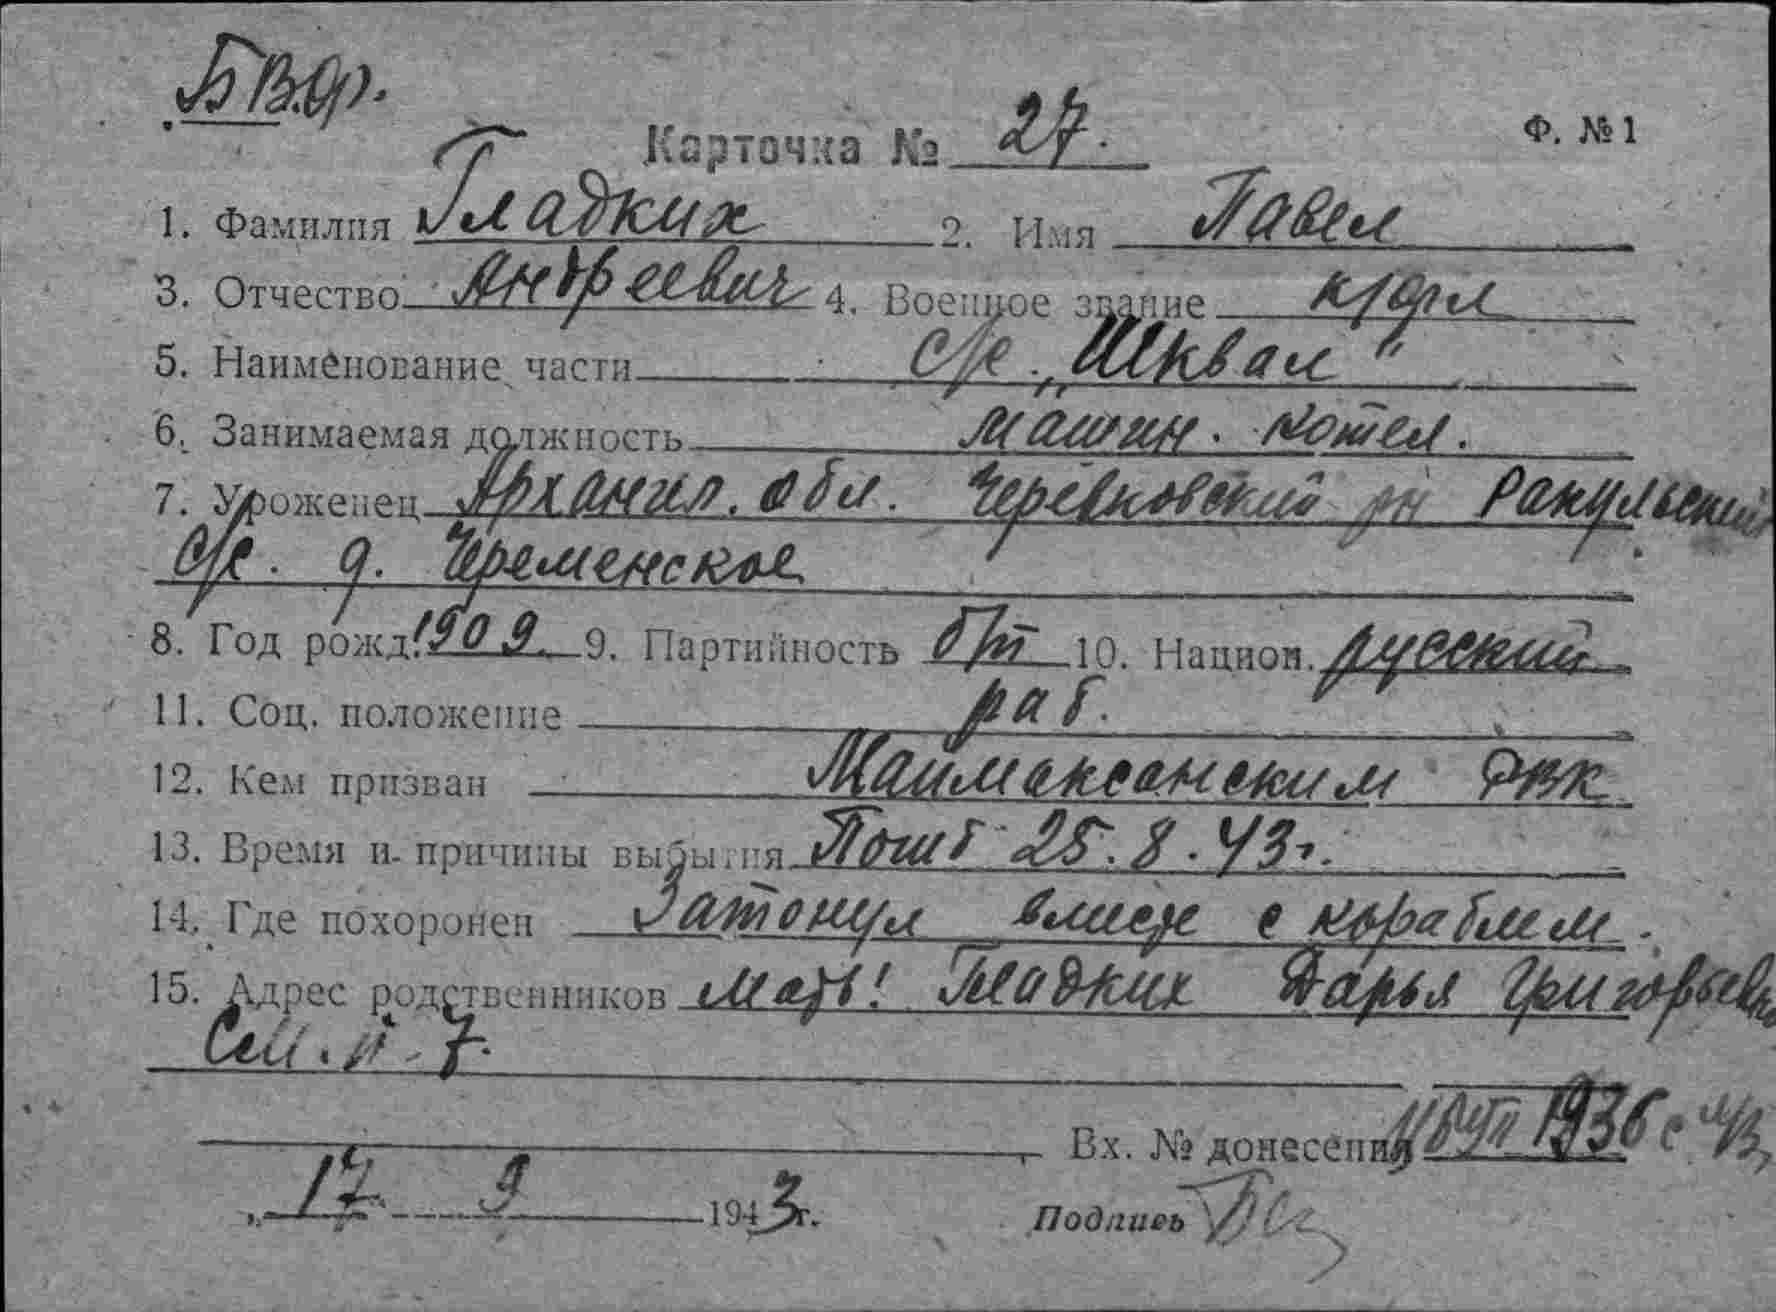 БВФ.
Карточка № 27.
Ф. № 1
1. Фамилия Гладких 2. Имя Павел
3. Отчество Андреевич 4. Военное звание к/фл
5. Наименование части с/к „Шквал"
6. Занимаемая должность машин. котел.
7. Уроженец Архангел. обл. Черевковский рн Ракульский
с/с. д. Черeменское
8. Год рожд. 1909. 9. Партийность б/п 10. Национ. русский
11. Соц. положение раб.
12. Кем призван Маймаксанским РВК
13. Время и причины выбытия Погиб 25.8.43г.
14. Где похоронен Затонул вместе с кораблем.
15. Адрес родственников мать: Гладких Дарья Григорьевна
7.
Вх. № донесения 1936с
„ 17 9 1943г.
Подпись